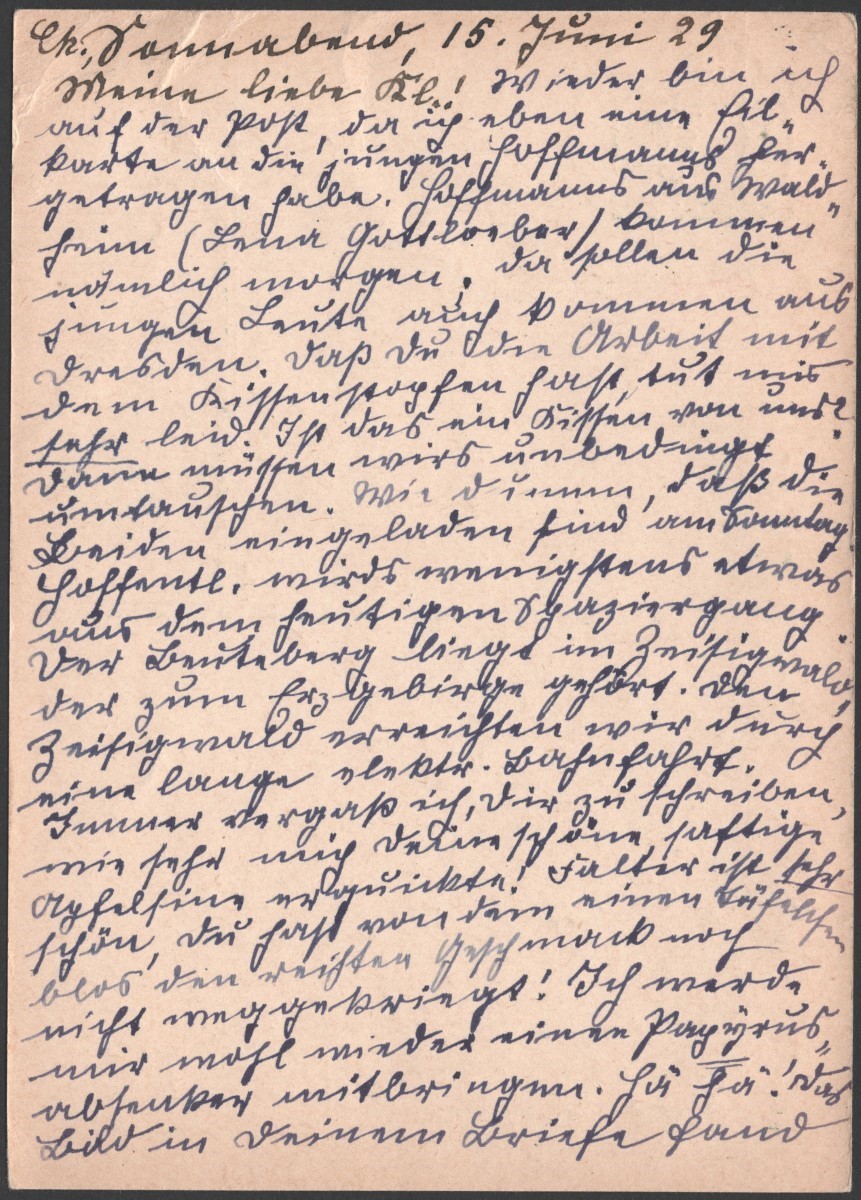 Ch., Sonnabend, 15. Juni 29
Meine liebe Kl.! Wieder bin ich
auf der Post, da ich eben eine Eil-
karte an die jungen Hoffmanns her-
getragen habe. Hoffmanns aus Wald-
heim (Lena Gottloeber) kommen
nämlich morgen, da sollen die
jungen Leute auch kommen aus
Dresden. Daß Du die Arbeit mit
dem Kissenstopfen hast, tut mir
sehr leid. Ist das ein Kissen von uns?
Dann müssen wirs unbedingt
umtauschen. Wie dumm, daß die
Beiden eingeladen sind am Sonntag
Hoffentl. wirds wenigstens etwas
aus dem heutigen Spaziergang
Der Beuteberg liegt im Zeisigwald,
der zum Erzgebirge gehört. Den
Zeisigwald erreichten wir durch
eine lange elektr. Bahnfahrt.
Immer vergaß ich, Dir zu schreiben,
wie sehr mich Deine schöne, saftige
Apfelsine erquickte! Falter ist sehr
schön, Du hast von dem einen Täfelchen
blos den rechten Geschmack noch
nicht weggekriegt! Ich werde
mir wohl wieder einen Papyrus-
absenker mitbringen. Hä hä! Das
Bild in Deinem Briefe fand